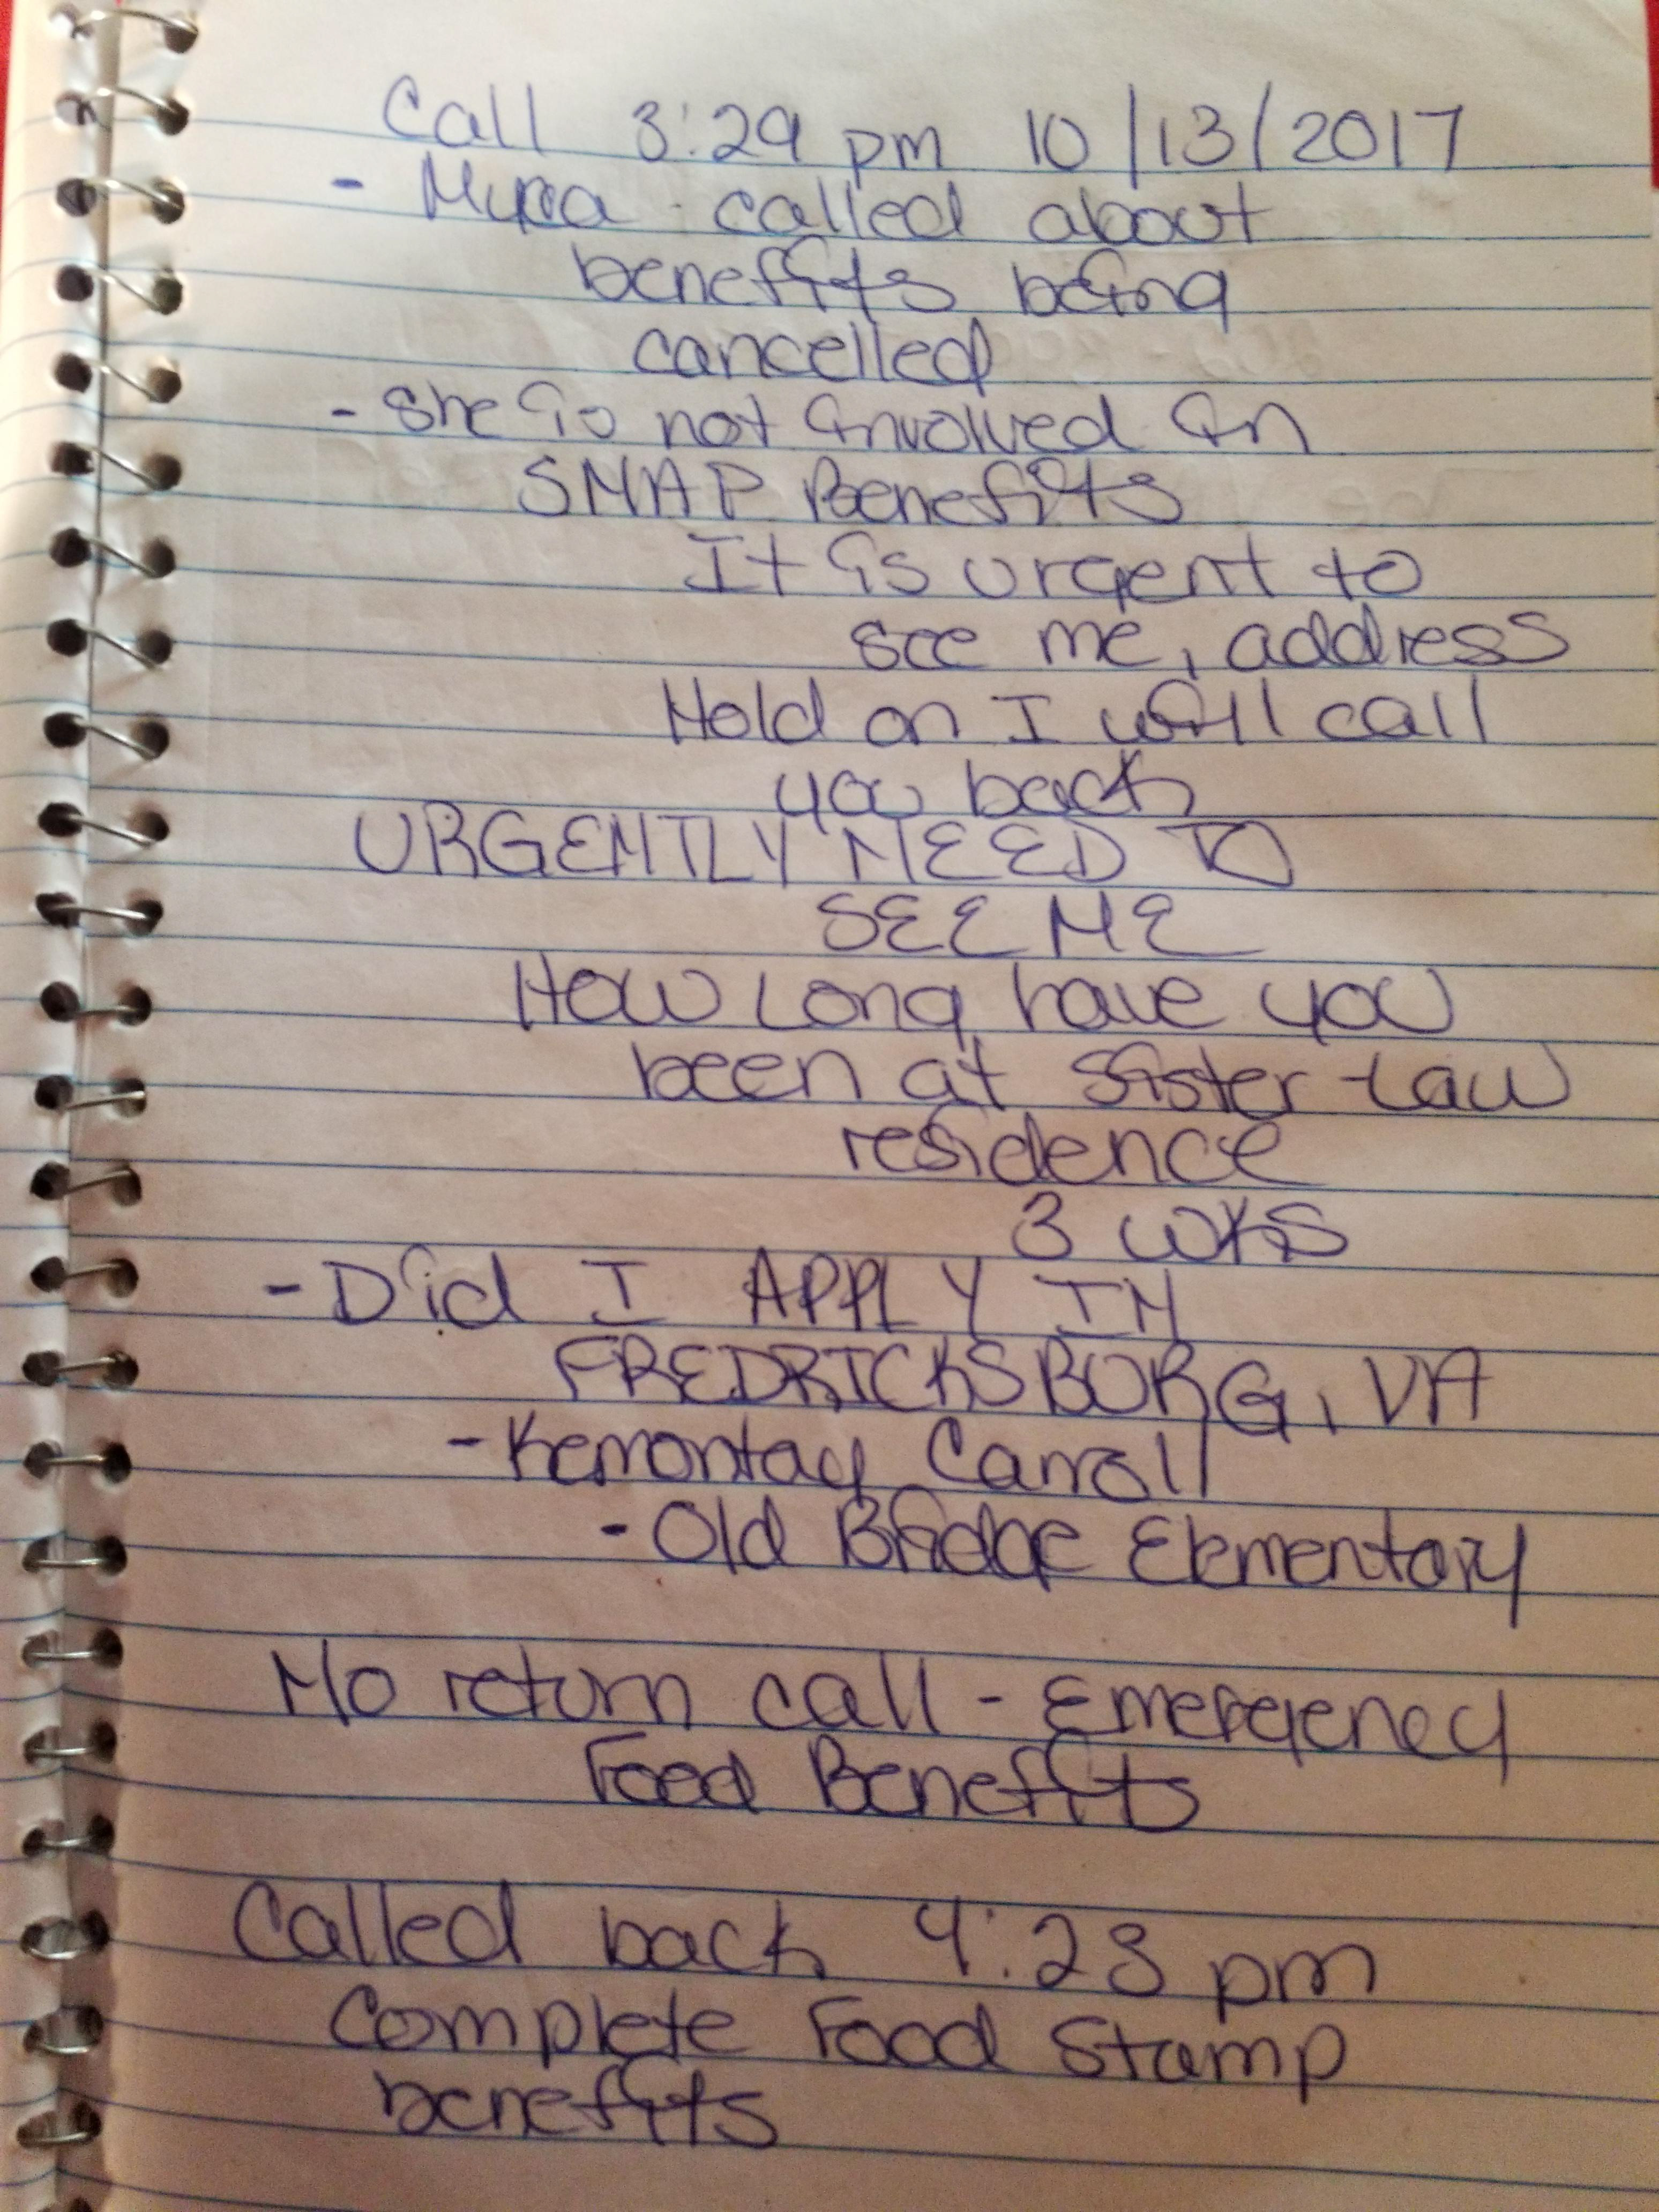 Call 3:29 pm 10/13/2017
- Myra called about
benefits being
cancelled
- She is not involved in
SNAP Benefits
It is urgent to
see me, address
Hold on I will call
you back
URGENTLY NEED TO
SEE ME
How Long have you
been at sister-Law
residence
3 wks
- Did I APPLY IN
FREDRICKSBURG, VA
- Kemontay Carroll
- Old Bridge Elementary
No return call - Emergency
Food Benefits
Called back 4:23 pm
Complete Food Stamp
benefits